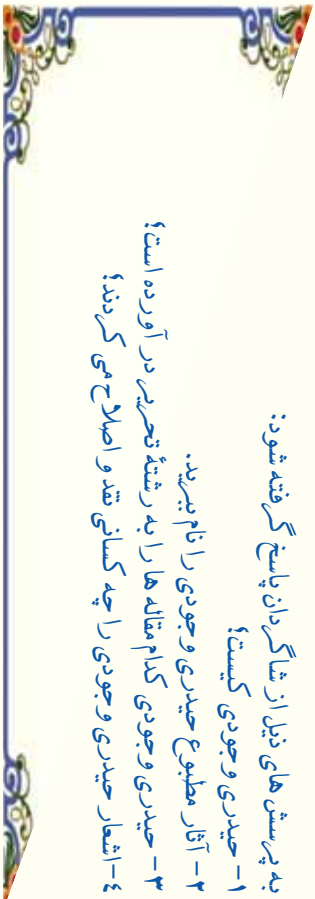 به پرسش های ذیل از شاگردان پاسخ گرفته شود:
۱- حیدری وجودی کیست؟
۲- آثار مطبوع حیدری وجودی را نام ببرید.
۳- حیدری وجودی کدام مقاله ها را به رشتهٔ تحریر در آورده است؟
٤- اشعار حیدری وجودی را چه کسانی نقد و اصلاح می کردند؟